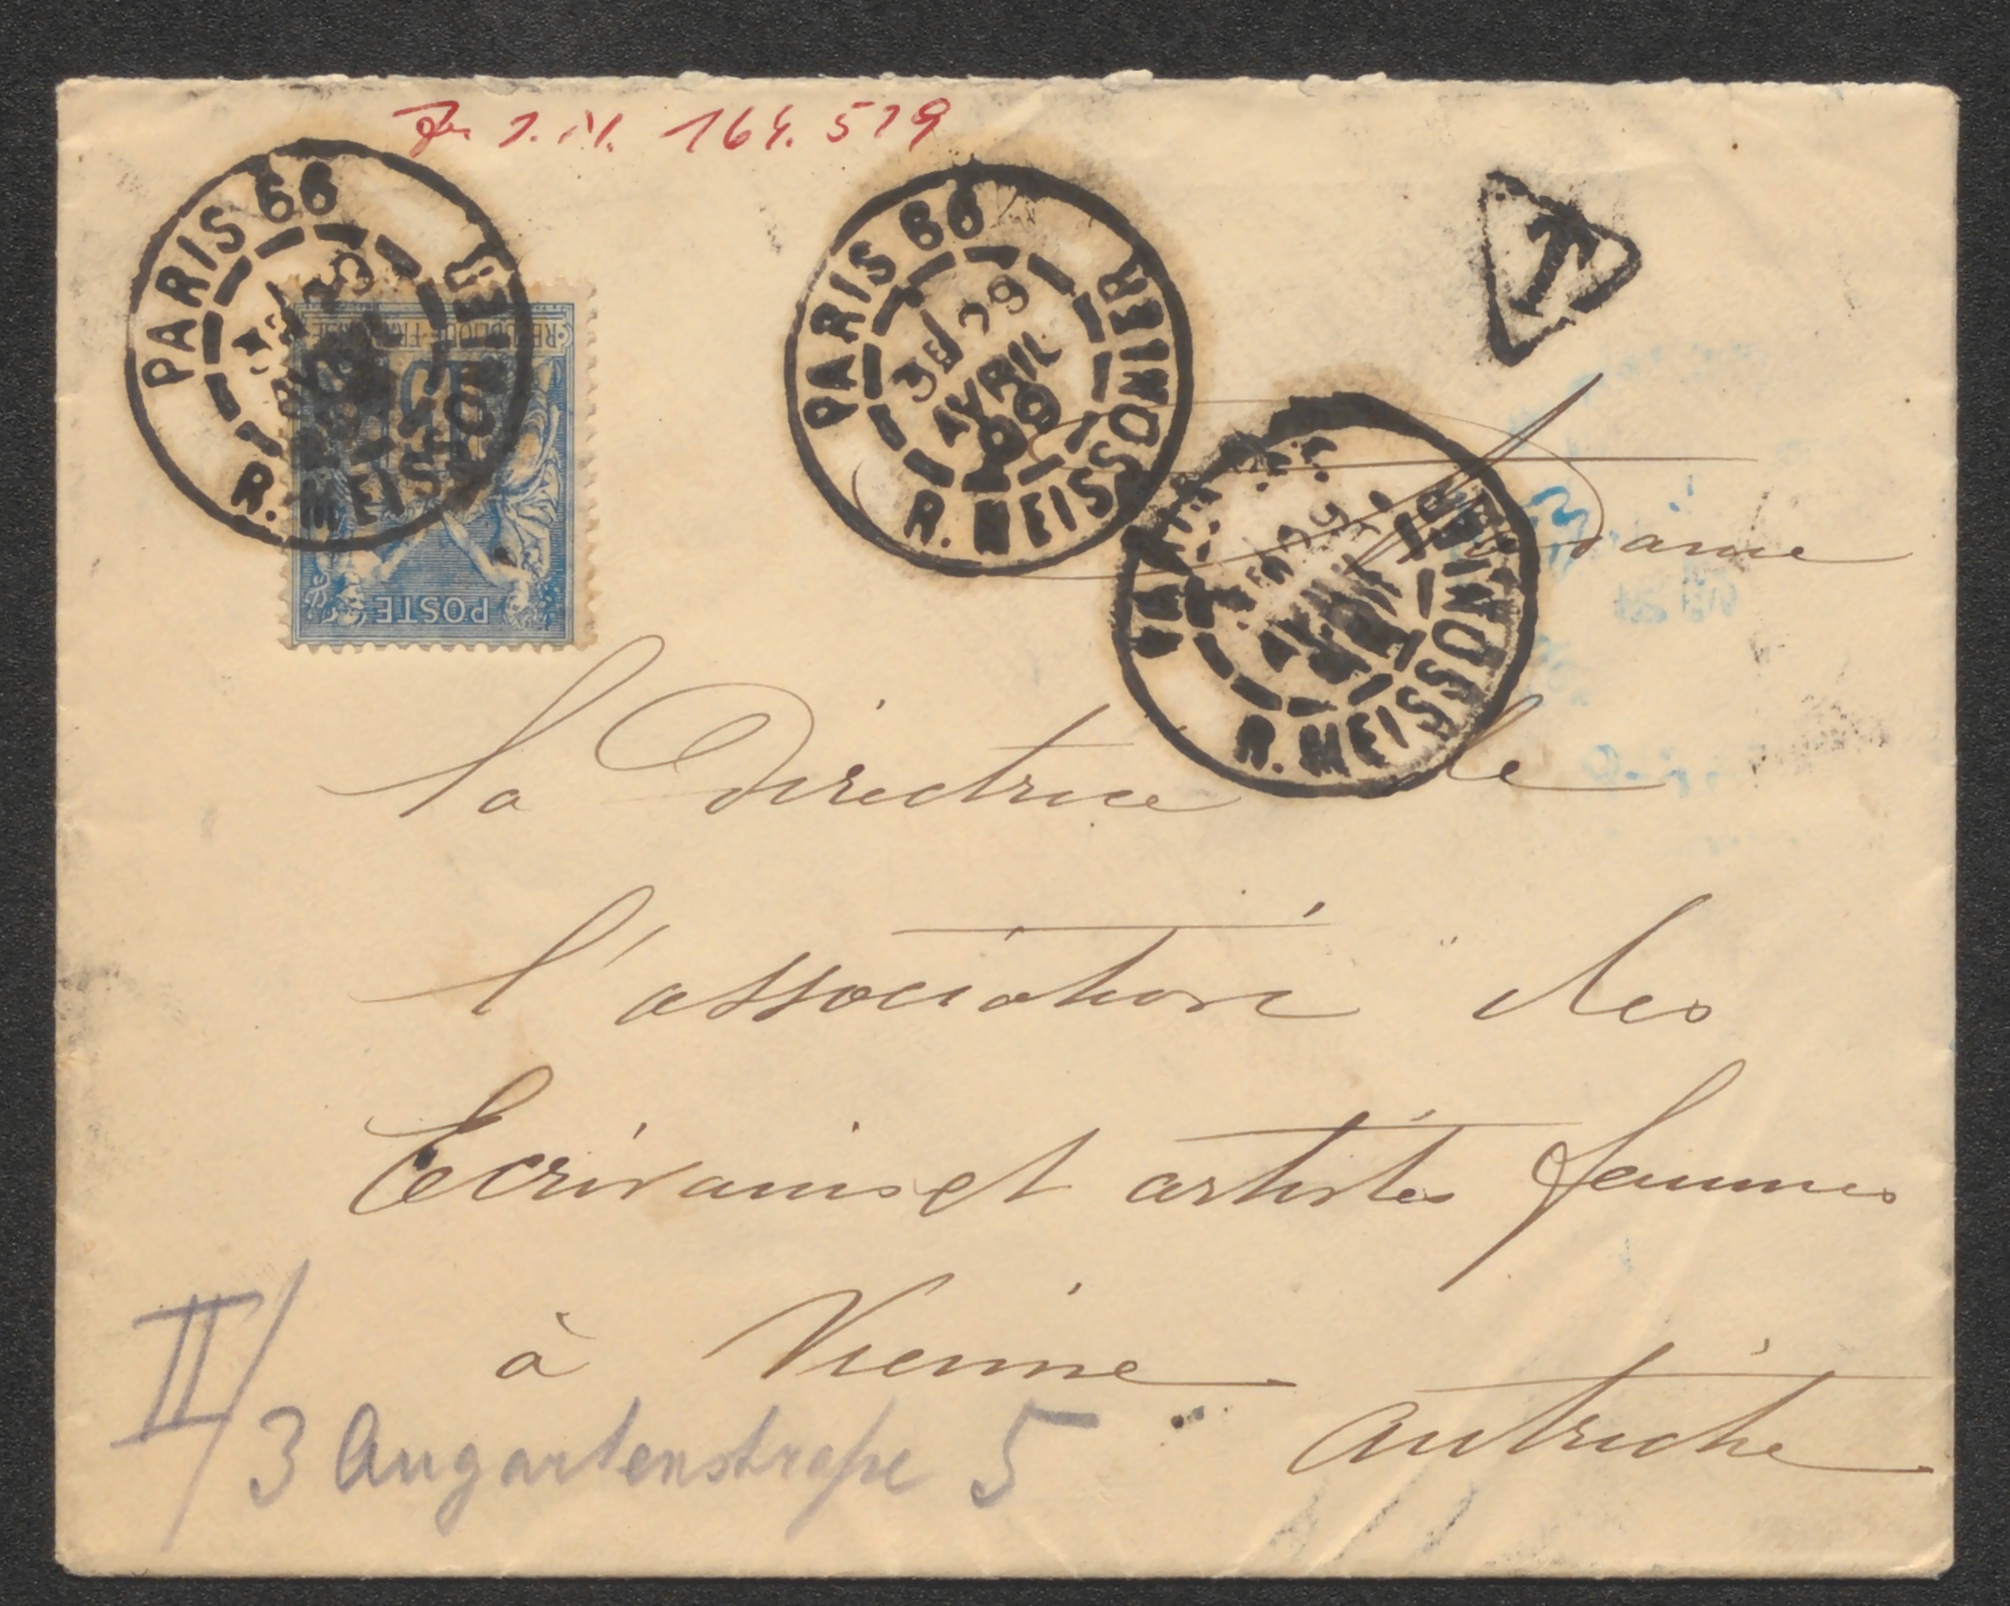 Zu I.N. 164.519
PARIS 66
R. MEISSONIER
REPUBLIQUE FRANÇAISE
15
POSTE
PARIS 66
3E/29
AVRIL
99
R. MEISSONIER
T
R. MEISSONIER
Madame
la Directrice de
l'association des
Ecrivains et artistes femmes
à Vienne
Autriche
II/3 Augartenstraße 5